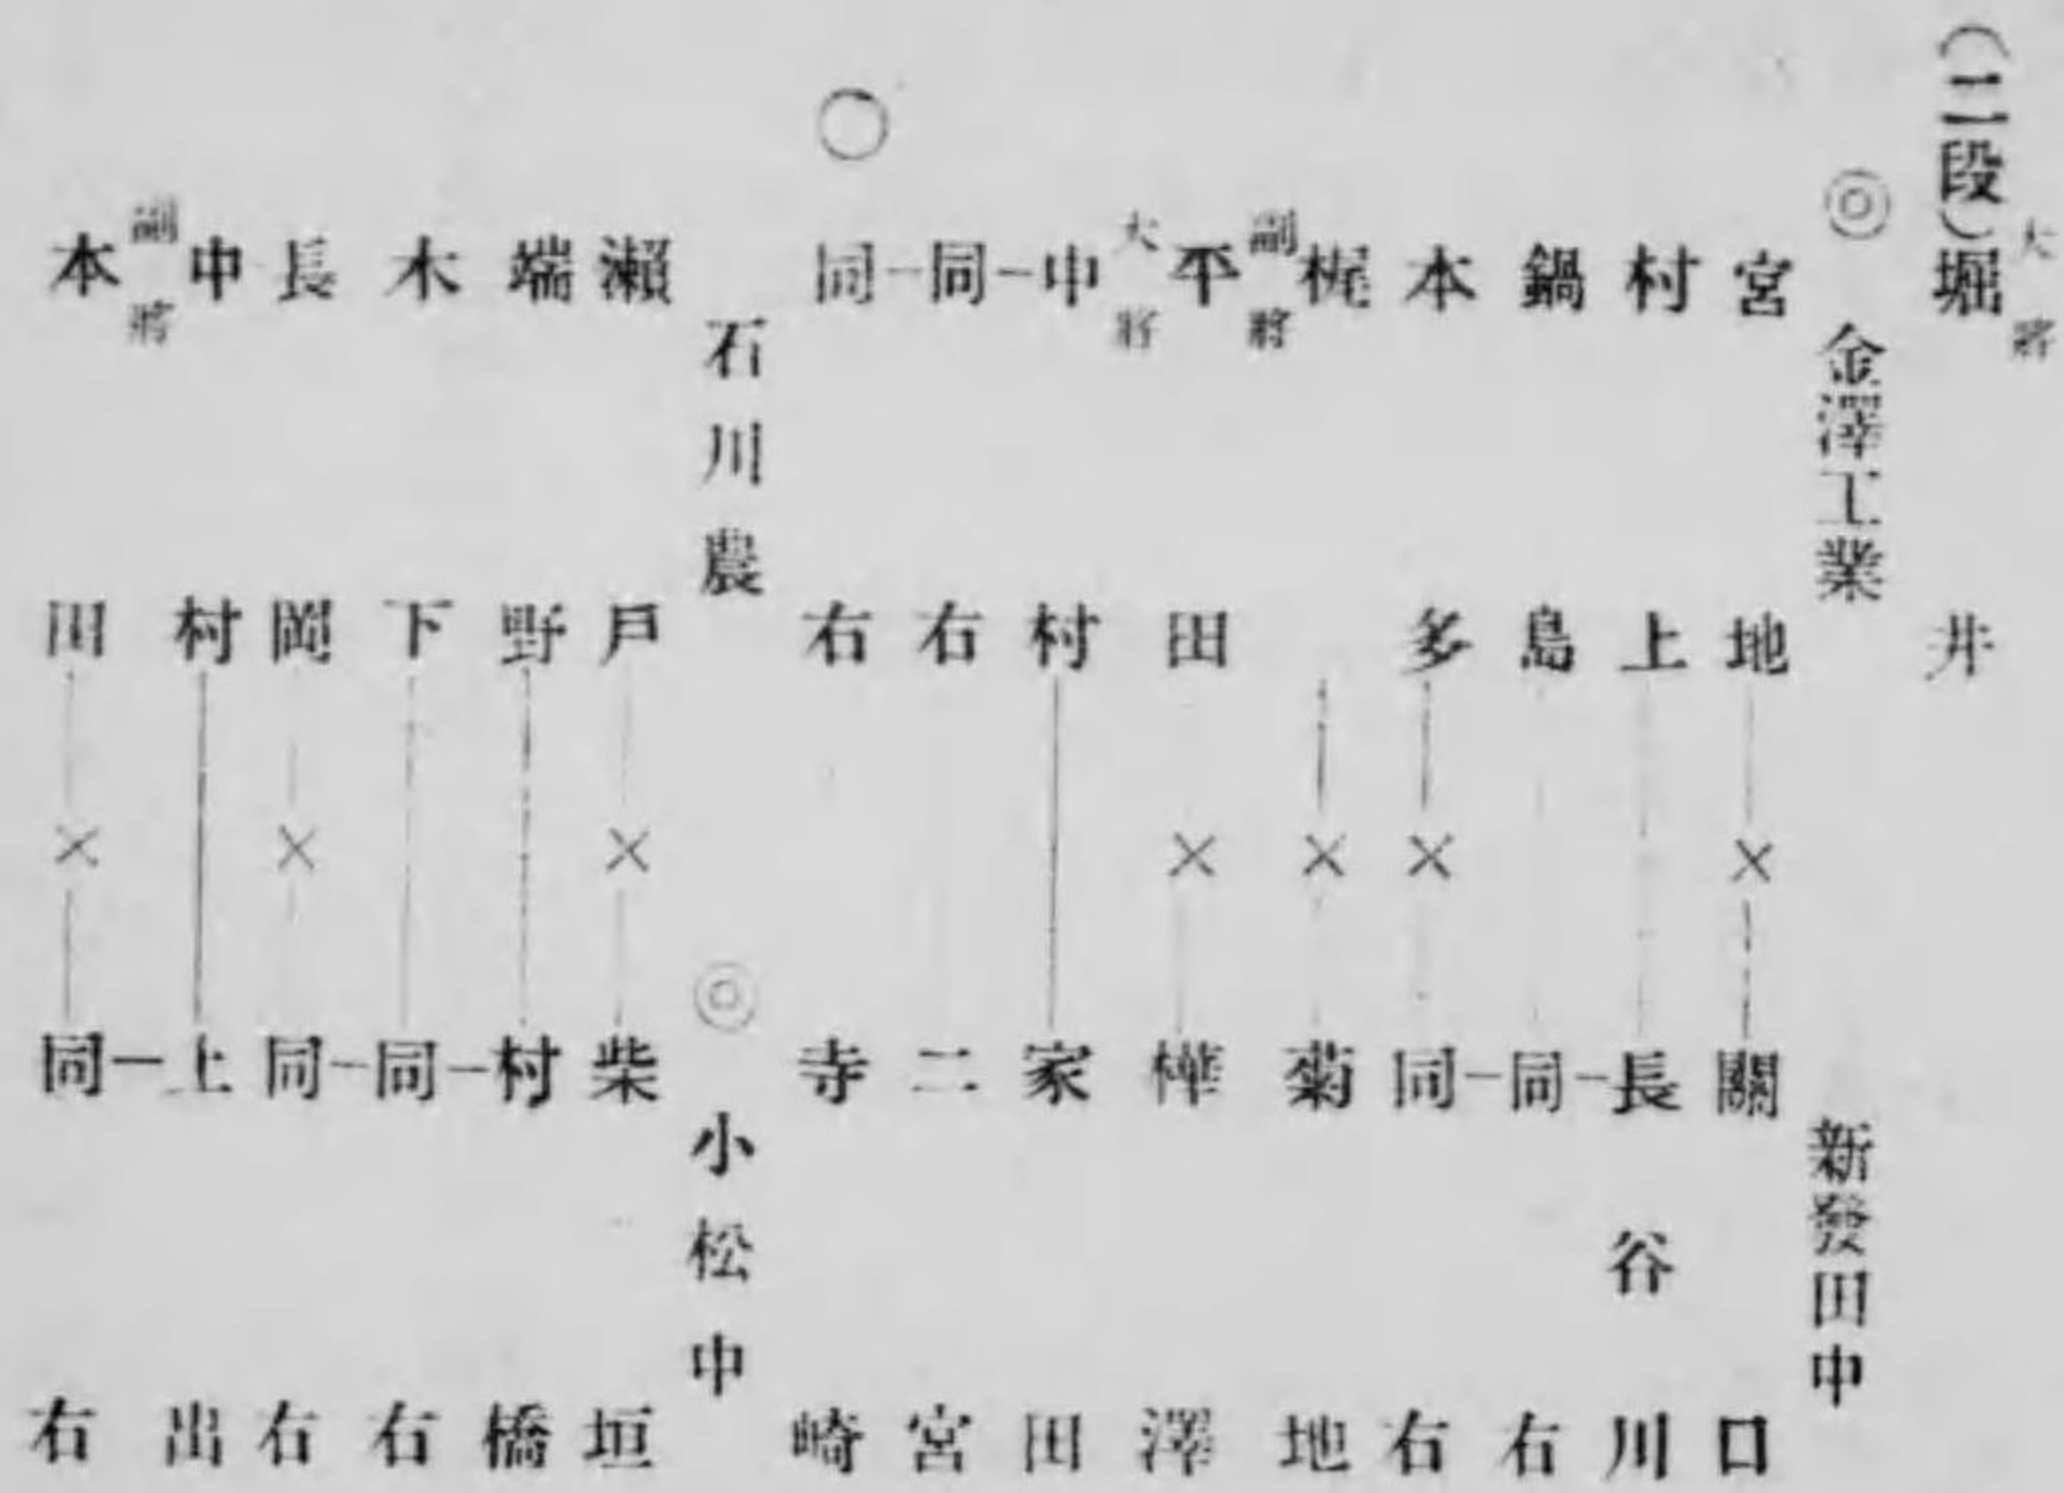 大將
(二段)堀井
◎金澤工業 新發田中
宮地──×──關口
村上────長谷川
鍋島────同右
本多──×──同右
梶──×──菊地
副將
平田──×──樺澤
大將
中村────家田
同右 二宮
○同右 寺崎
石川農 ◎小松中
瀬戸──×──柴垣
端野────村橋
木下────同右
長岡──×──同右
中村────上出
副將
本田──×──同右